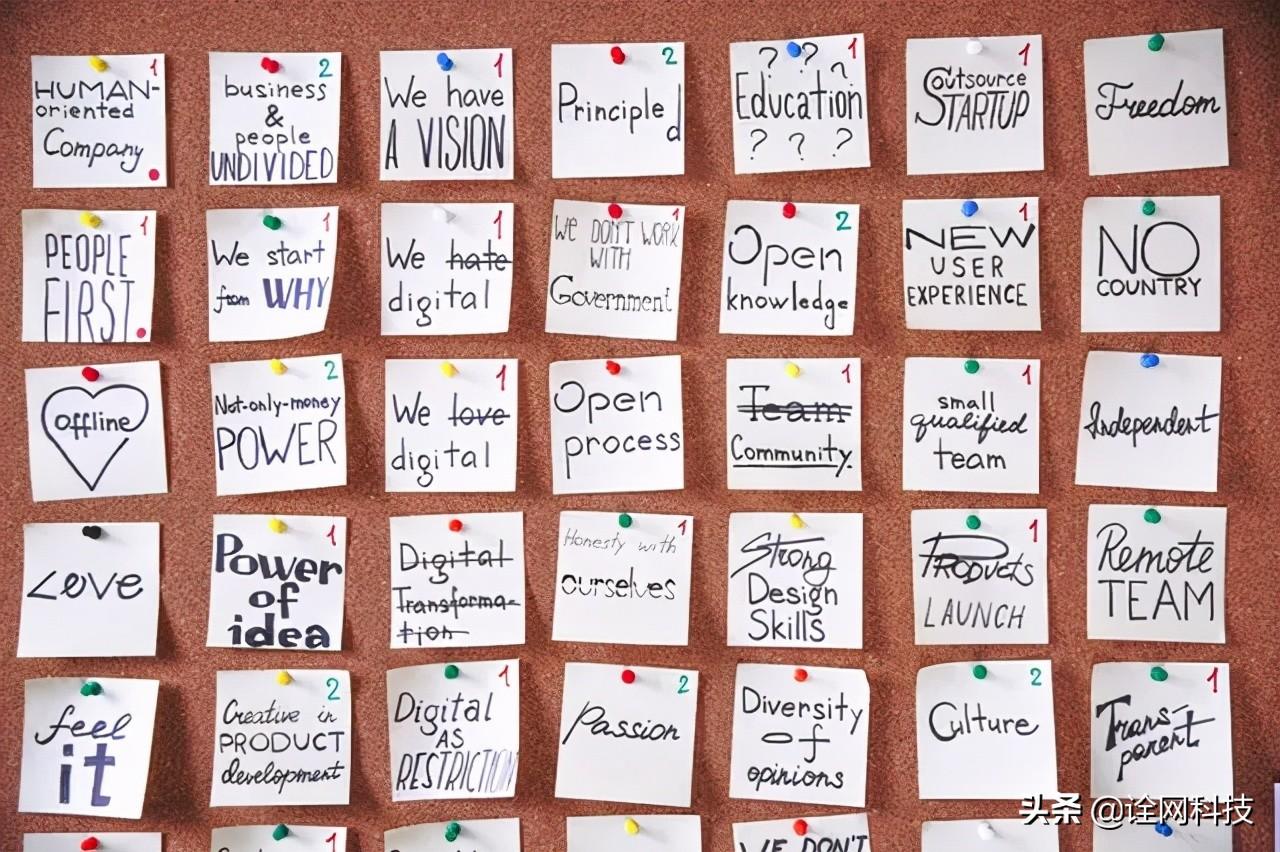 HUMAN- 1
oriented
Company
business 2
&
people
UNDIVIDED
We have 1
A VISION
Principle 2
d
? ? ? 1
Education
? ? ?
Outsource 1
STARTUP
Freedom
PEOPLE 1
FIRST.
We start 1
from WHY
We hate 1
digital
We DON'T WORK 1
WITH
Government
Open 2
knowledge
NEW 1
USER
EXPERIENCE
NO
COUNTRY
offline
Not-only-money 2
POWER
We love 1
digital
Open
process
Team 1
Community.
small 1
qualified
team
Independent
Love
Power 1
of
idea
Digital
Transforma-
tion
Honesty with 1
ourselves
Strong
Design
Skills
Products 1
LAUNCH
Remote
TEAM
feel
it
Creative in 2
PRODUCT
development
Digital 1
AS
RESTRICTION
Passion 2
Diversity
of
opinions
Culture 2
Trans- 1
parent
1
WE DON'T
头条 @诠网科技